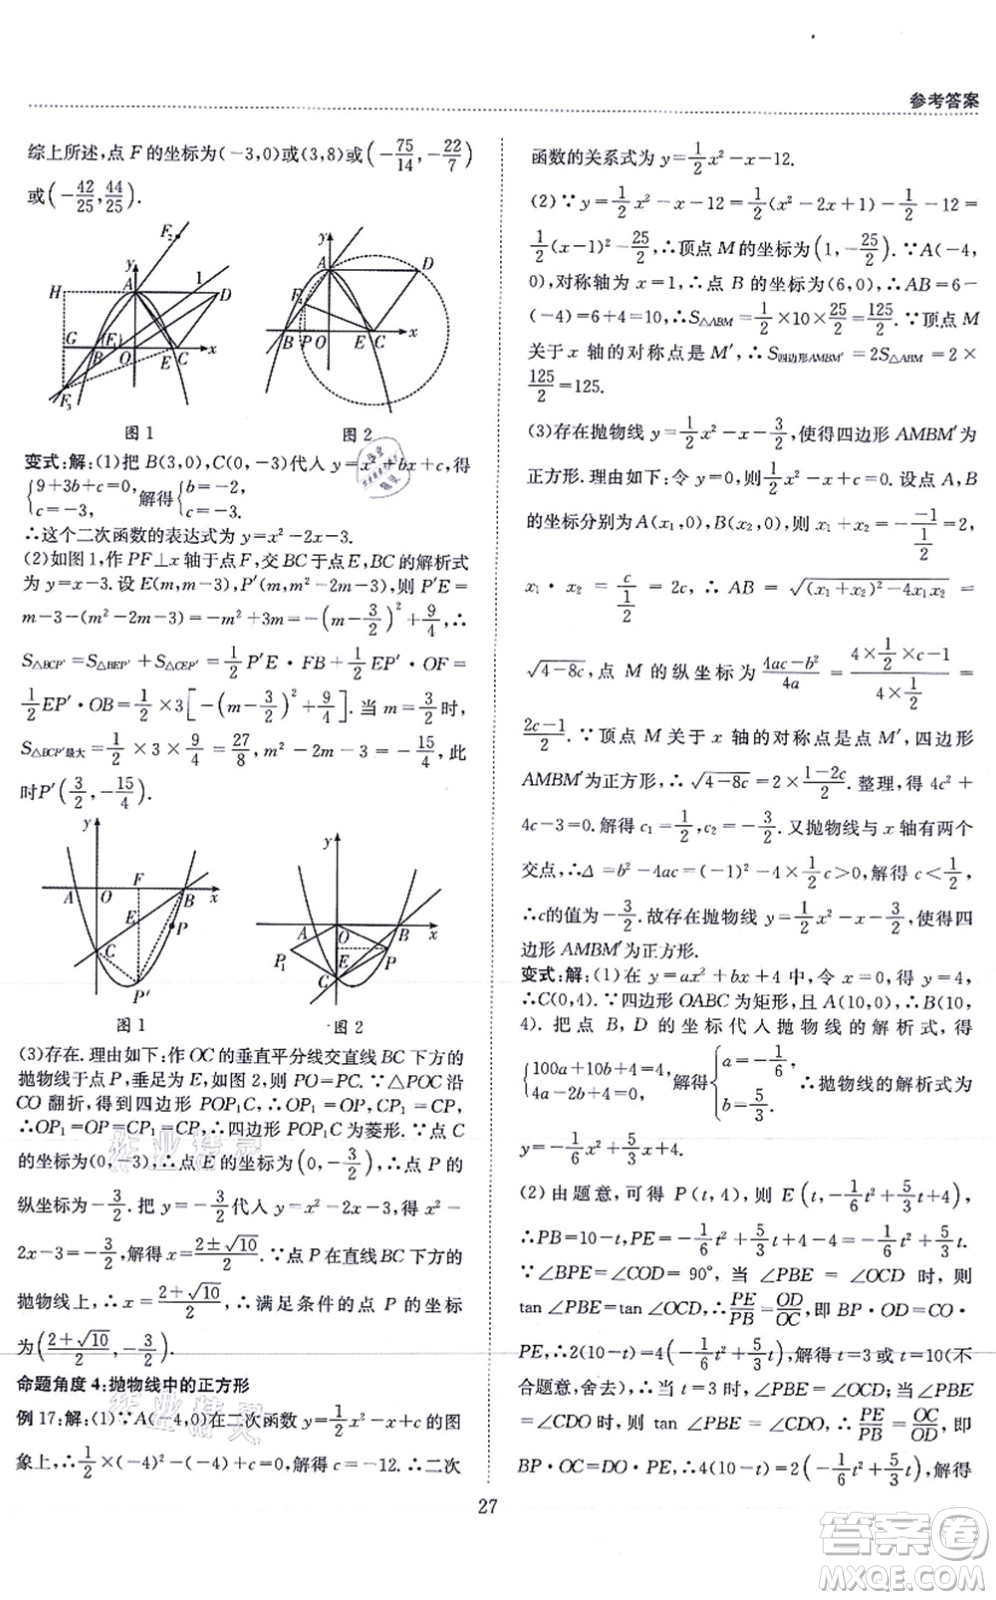 参考答案
综上所述,点 F 的坐标为(-3,0)或(3,8)或(-75/14,-22/7)
或(-42/25,44/25).
图1
图2
变式:解:(1)把 B(3,0),C(0,-3)代入 y=x²+bx+c,得
{9+3b+c=0, c=-3. 解得{b=-2, c=-3.
∴这个二次函数的表达式为 y=x²-2x-3.
(2)如图1,作 PF⊥x 轴于点 F,交 BC 于点 E,BC 的解析式
为 y=x-3.设 E(m,m-3),P′(m,m²-2m-3),则 P′E=
m-3-(m²-2m-3)=-m²+3m=-(m-3/2)²+9/4,∴
S△BCP′=S△BEP′+S△CEP′=1/2P′E·FB+1/2EP′·OF=
1/2EP′·OB=1/2×3[-(m-3/2)²+9/4].当 m=3/2时,
S△BCP′最大=1/2×3×9/4=27/8,m²-2m-3=-15/4,此
时P′(3/2,-15/4).
图1
图2
(3)存在.理由如下:作 OC 的垂直平分线交直线 BC 下方的
抛物线于点 P,垂足为 E,如图2,则 PO=PC.∵△POC 沿
CO 翻折,得到四边形 POP₁C,∴OP₁=OP,CP₁=CP,
∴OP₁=OP=CP₁=CP,∴四边形 POP₁C 为菱形.∵点 C
的坐标为(0,-3),∴点 E 的坐标为(0,-3/2),∴点 P 的
纵坐标为-3/2.把 y=-3/2代入 y=x²-2x-3,得 x²-
2x-3=-3/2,解得 x=(2±√10)/2.∵点 P 在直线 BC 下方的
抛物线上,∴x=(2+√10)/2,∴满足条件的点 P 的坐标
为((2+√10)/2,-3/2).
命题角度4:抛物线中的正方形
例17:解:(1)∵A(-4,0)在二次函数 y=1/2x²-x+c 的图
象上,∴1/2×(-4)²-(-4)+c=0,解得 c=-12,∴二次
函数的关系式为 y=1/2x²-x-12.
(2)∵y=1/2x²-x-12=1/2(x²-2x+1)-1/2-12=
1/2(x-1)²-25/2,∴顶点 M 的坐标为(1,-25/2).∵A(-4,
0),对称轴为直线 x=1,∴点 B 的坐标为(6,0),∴AB=6-
(-4)=6+4=10,∴S△ABM=1/2×10×25/2=125/2.∵顶点 M
关于 x 轴的对称点是 M′,∴S四边形AMBM′=2S△ABM=2×
125/2=125.
(3)存在抛物线 y=1/2x²-x-3/2,使得四边形 AMBM′为
正方形.理由如下:令 y=0,则1/2x²-x+c=0.设点 A,B
的坐标分别为 A(x₁,0),B(x₂,0),则 x₁+x₂=-(-1)/(1/2)=2,
x₁·x₂=c/(1/2)=2c,∴AB=√((x₁+x₂)²-4x₁x₂)=
√(4-8c),点 M 的纵坐标为(4ac-b²)/4a=(4×1/2×c-1)/(4×1/2)=
(2c-1)/2.∵顶点 M 关于 x 轴的对称点是点 M′,四边形
AMBM′为正方形,∴√(4-8c)=2×(1-2c)/2.整理,得 4c²+
4c-3=0.解得 c₁=1/2,c₂=-3/2.又抛物线与 x 轴有两个
交点,∴Δ=b²-4ac=(-1)²-4×1/2c>0,解得 c<1/2,
∴c的值为-3/2.故存在抛物线 y=1/2x²-x-3/2,使得四
边形 AMBM′为正方形.
变式:解:(1)在 y=ax²+bx+4 中,令 x=0,得 y=4,
∴C(0,4).∵四边形 OABC 为矩形,且 A(10,0),∴B(10,
4).把点 B,D 的坐标代入抛物线的解析式,得
{100a+10b+4=4, 4a-2b+4=0, 解得{a=-1/6, b=5/3. ∴抛物线的解析式为
y=-1/6x²+5/3x+4.
(2)由题意,可得 P(t,4),则 E(t,-1/6t²+5/3t+4),
∴PB=10-t,PE=-1/6t²+5/3t+4-4=-1/6t²+5/3t.
∵∠BPE=∠COD=90°,当∠PBE=∠OCD 时,则
tan∠PBE=tan∠OCD,∴PE/PB=OD/OC,即 BP·OD=CO·
PE,∴2(10-t)=4(-1/6t²+5/3t),解得 t=3或 t=10(不
合题意,舍去),∴当∠PBE=∠OCD 时,t=3;当∠PBE
=∠CDO 时,则 tan∠PBE=∠CDO,∴PE/PB=OC/OD,即
BP·OC=DO·PE,∴4(10-t)=2(-1/6t²+5/3t),解得
27
答案圈
MXQE.COM